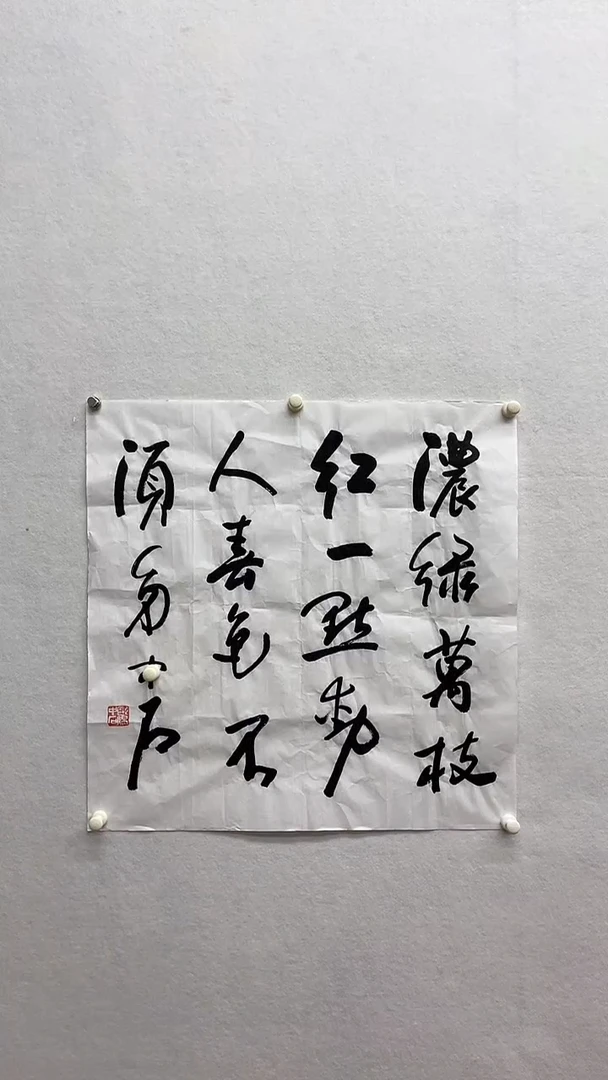 濃綠萬枝
紅一點動
人春色不
須多 中石